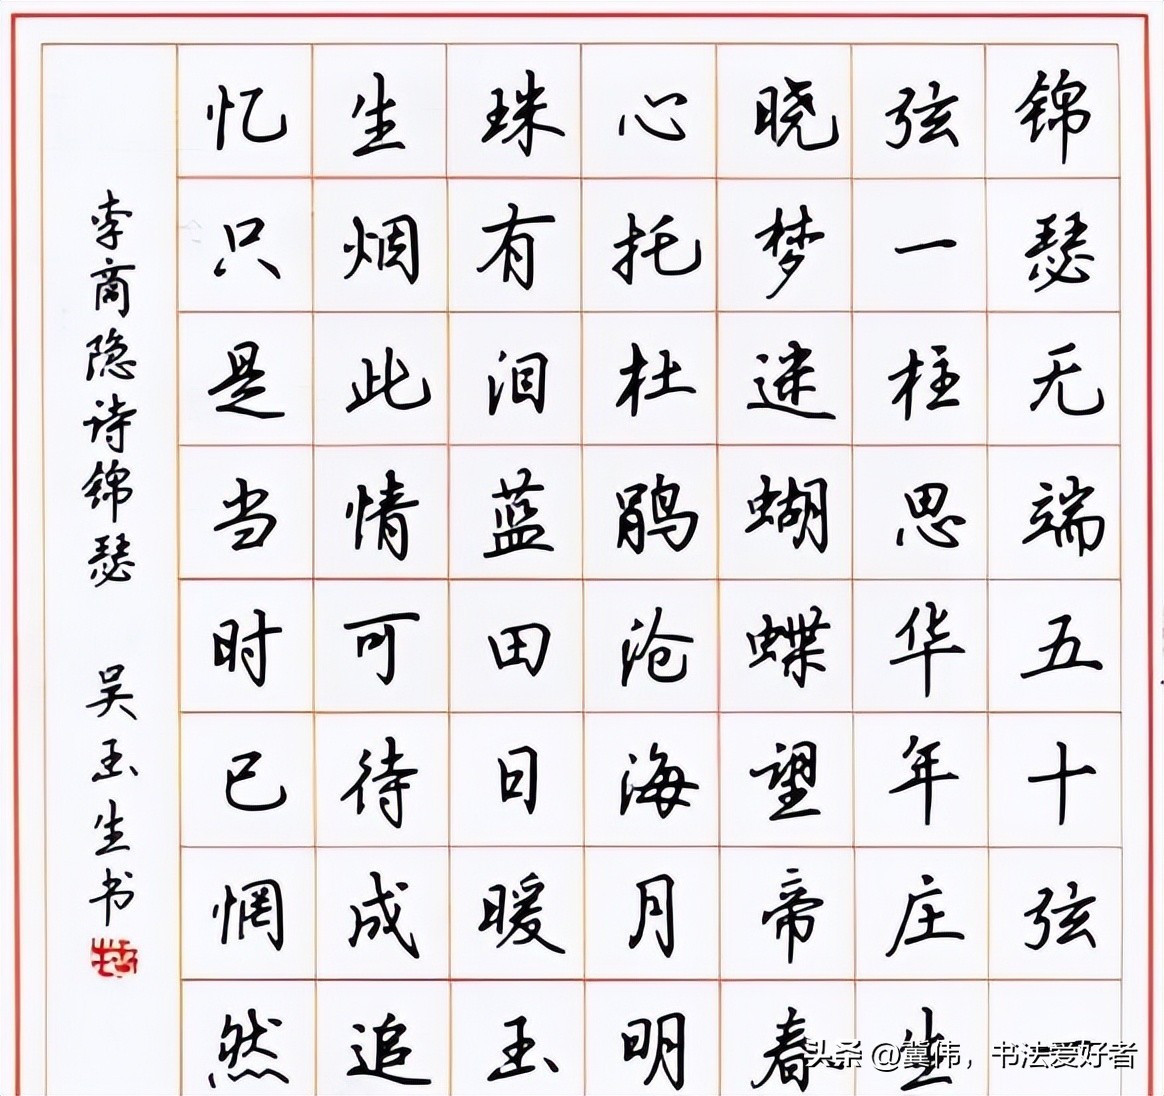 锦瑟无端五十弦一
弦一柱思华年庄生
晓梦迷蝴蝶望帝春
心托杜鹃沧海月明
珠有泪蓝田日暖玉
生烟此情可待成追
忆只是当时已惘然
李商隐诗锦瑟 吴玉生书
头条 @冀伟，书法爱好者